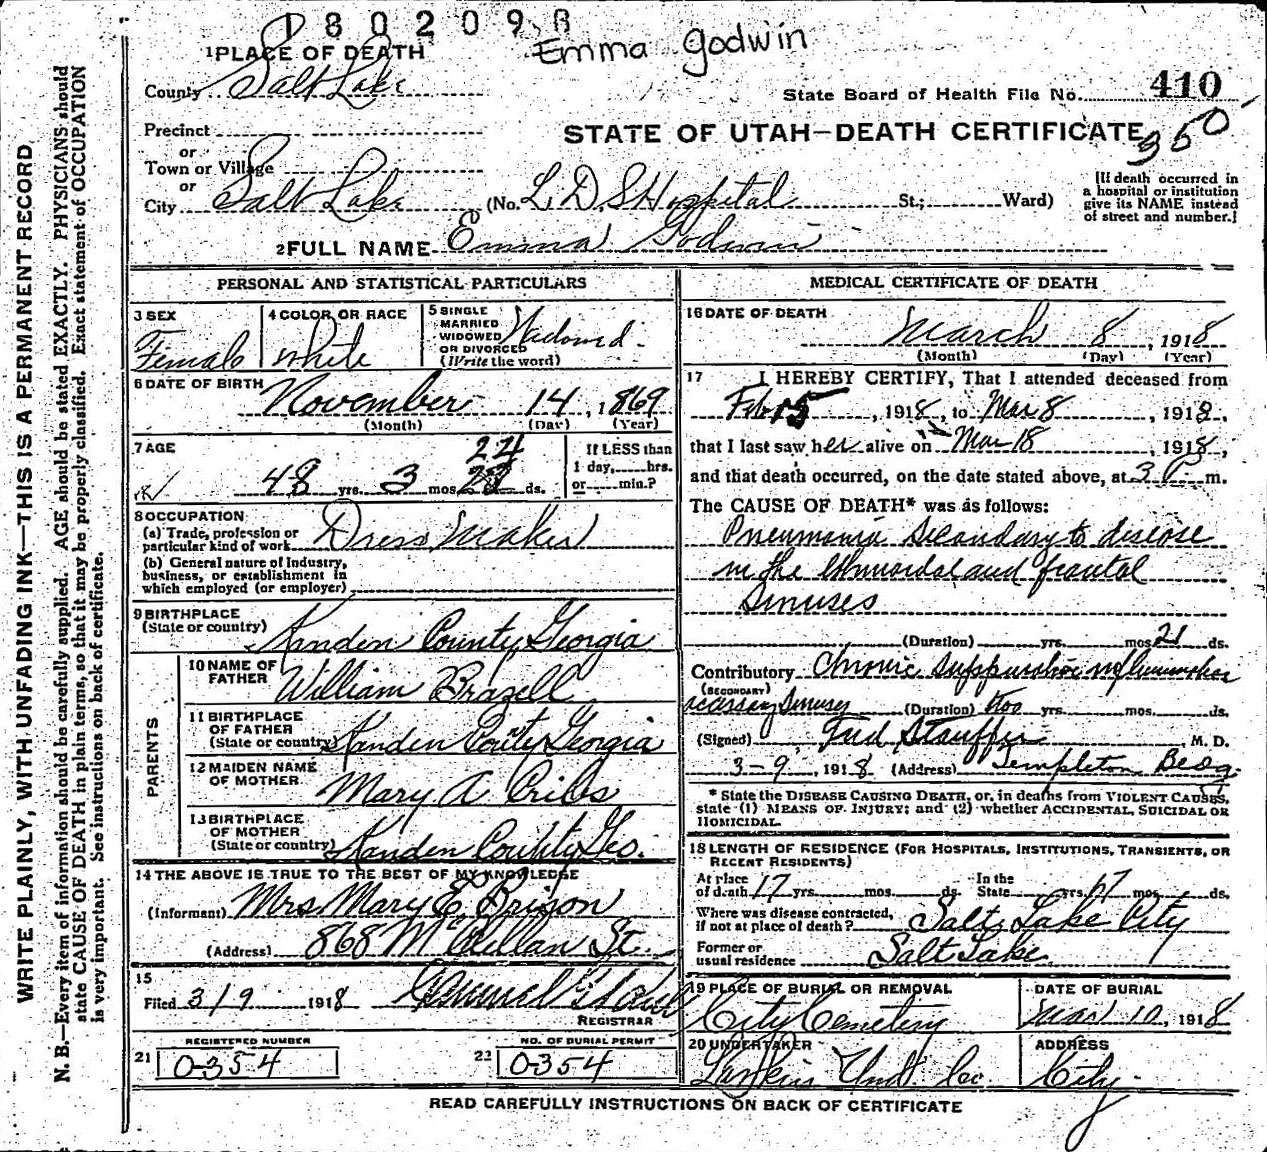 1802098
Emma Godwin
1 PLACE OF DEATH
County Salt Lake
State Board of Health File No. 410
Precinct
STATE OF UTAH—DEATH CERTIFICATE
350
or
Town or Village
or
City Salt Lake (No. L. D. S Hospital St.; Ward)
[If death occurred in
a hospital or institution
give its NAME instead
of street and number.]
2 FULL NAME Emma Godwin
WRITE PLAINLY, WITH UNFADING INK—THIS IS A PERMANENT RECORD
N. B.—Every item of information should be carefully supplied. AGE should be stated EXACTLY. PHYSICIANS should
state CAUSE OF DEATH in plain terms, so that it may be properly classified. Exact statement of OCCUPATION
is very important. See instructions on back of certificate.
PERSONAL AND STATISTICAL PARTICULARS
3 SEX
Female
4 COLOR OR RACE
White
5 SINGLE
MARRIED
WIDOWED
OR DIVORCED
(Write the word)
Widowed.
6 DATE OF BIRTH
November 14, 1869
(Month) (Day) (Year)
7 AGE
24
48 yrs. 3 mos. ds.
If LESS than
1 day, hrs.
or min.?
8 OCCUPATION
(a) Trade, profession or
particular kind of work Dress Maker
(b) General nature of Industry,
business, or establishment in
which employed (or employer)
9 BIRTHPLACE
(State or country) Kanden County Georgia
PARENTS
10 NAME OF
FATHER William Brazell
11 BIRTHPLACE
OF FATHER
(State or country) Kanden County Georgia
12 MAIDEN NAME
OF MOTHER Mary A Cribs
13 BIRTHPLACE
OF MOTHER
(State or country) Kanden County Geo.
14 THE ABOVE IS TRUE TO THE BEST OF MY KNOWLEDGE
(Informant) Mrs. Mary E Brison
(Address) 868 McClellan St.
15
Filed 3/9 1918
REGISTRAR
REGISTERED NUMBER
21 0354
NO. OF BURIAL PERMIT
22 0354
MEDICAL CERTIFICATE OF DEATH
16 DATE OF DEATH
March 8, 1918
(Month) (Day) (Year)
17 I HEREBY CERTIFY, That I attended deceased from
Feb 15, 1918, to Mar 8, 1918,
that I last saw her alive on Mar 18 1918,
and that death occurred, on the date stated above, at 3 P m.
The CAUSE OF DEATH* was as follows:
Pneumonia secondary to disease
in the ethmoidal and frontal
Sinuses
(Duration) yrs. mos. 21 ds.
Contributory Chronic suppurative
(SECONDARY)
accessory sinuses (Duration) two yrs. mos. ds.
(Signed) Fred Stauffer, M. D.
3-9, 1918 (Address) Templeton Bldg.
* State the DISEASE CAUSING DEATH, or, in deaths from VIOLENT CAUSES,
state (1) MEANS OF INJURY; and (2) whether ACCIDENTAL, SUICIDAL OR
HOMICIDAL.
18 LENGTH OF RESIDENCE (FOR HOSPITALS, INSTITUTIONS, TRANSIENTS, OR
RECENT RESIDENTS)
At place In the
of death 17 yrs. mos. ds. State yrs. 17 mos. ds.
Where was disease contracted,
if not at place of death? Salt Lake City
Former or
usual residence Salt Lake
19 PLACE OF BURIAL OR REMOVAL
City Cemetery
DATE OF BURIAL
Mar 10, 1918
20 UNDERTAKER
Larkin Und. Co.
ADDRESS
City.
READ CAREFULLY INSTRUCTIONS ON BACK OF CERTIFICATE